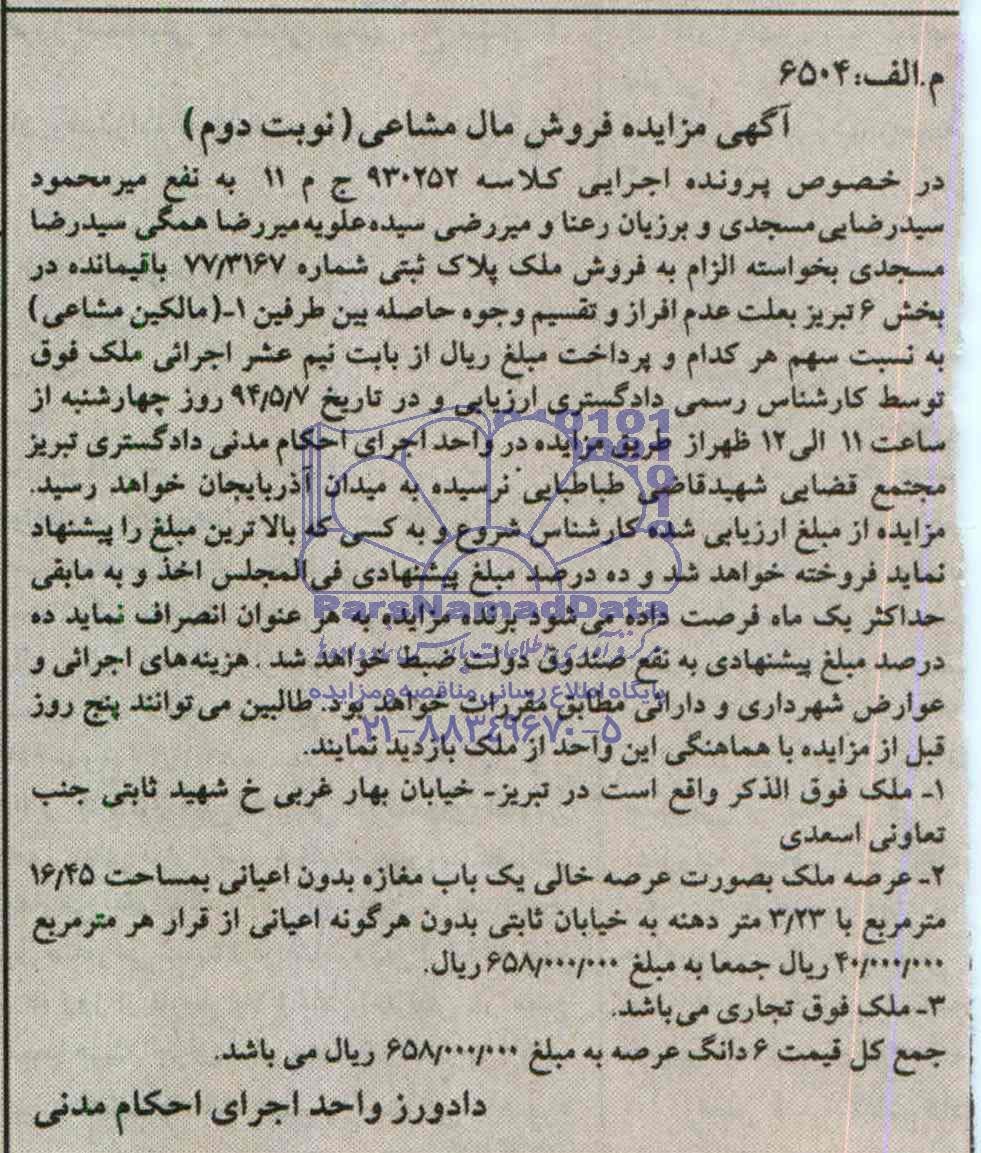 م.الف: ۶۵۰۴
آگهی مزایده فروش مال مشاعی (نوبت دوم)
در خصوص پرونده اجرایی کلاسه ۹۳۰۲۵۲ ج م ۱۱ به نفع میرمحمود
سیدرضایی مسجدی و برزیان رعنا و میررضی سیده علویه میررضا همگی سیدرضا
مسجدی بخواسته الزام به فروش ملک پلاک ثبتی شماره ۷۷/۳۱۶۷ باقیمانده در
بخش ۶ تبریز بعلت عدم افراز و تقسیم وجوه حاصله بین طرفین ۱-(مالکین مشاعی)
به نسبت سهم هر کدام و پرداخت مبلغ ریال از بابت نیم عشر اجرائی ملک فوق
توسط کارشناس رسمی دادگستری ارزیابی و در تاریخ ۹۴/۵/۷ روز چهارشنبه از
ساعت ۱۱ الی ۱۲ ظهر از طریق مزایده در واحد اجرای احکام مدنی دادگستری تبریز
مجتمع قضایی شهید قاضی طباطبایی نرسیده به میدان آذربایجان خواهد رسید.
مزایده از مبلغ ارزیابی شده کارشناس شروع و به کسی که بالاترین مبلغ را پیشنهاد
نماید فروخته خواهد شد و ده درصد مبلغ پیشنهادی فی المجلس اخذ و به مابقی
حداکثر یک ماه فرصت داده می شود برنده مزایده به هر عنوان انصراف نماید ده
درصد مبلغ پیشنهادی به نفع صندوق دولت ضبط خواهد شد. هزینه های اجرائی و
عوارض شهرداری و دارائی مطابق مقررات خواهد بود. طالبین می توانند پنج روز
قبل از مزایده با هماهنگی این واحد از ملک بازدید نمایند.
۱- ملک فوق الذکر واقع است در تبریز- خیابان بهار غربی خ شهید ثابتی جنب
تعاونی اسعدی
۲- عرصه ملک بصورت عرصه خالی یک باب مغازه بدون اعیانی بمساحت ۱۶/۴۵
مترمربع با ۳/۲۳ متر دهنه به خیابان ثابتی بدون هرگونه اعیانی از قرار هر مترمربع
۴۰/۰۰۰/۰۰۰ ریال جمعا به مبلغ ۶۵۸/۰۰۰/۰۰۰ ریال.
۳- ملک فوق تجاری می باشد.
جمع کل قیمت ۶ دانگ عرصه به مبلغ ۶۵۸/۰۰۰/۰۰۰ ریال می باشد.
دادورز واحد اجرای احکام مدنی
ParsNamadData
پایگاه اطلاع رسانی مناقصه و مزایده
۰۲۱-۸۸۳۴۹۶۷۰-۵